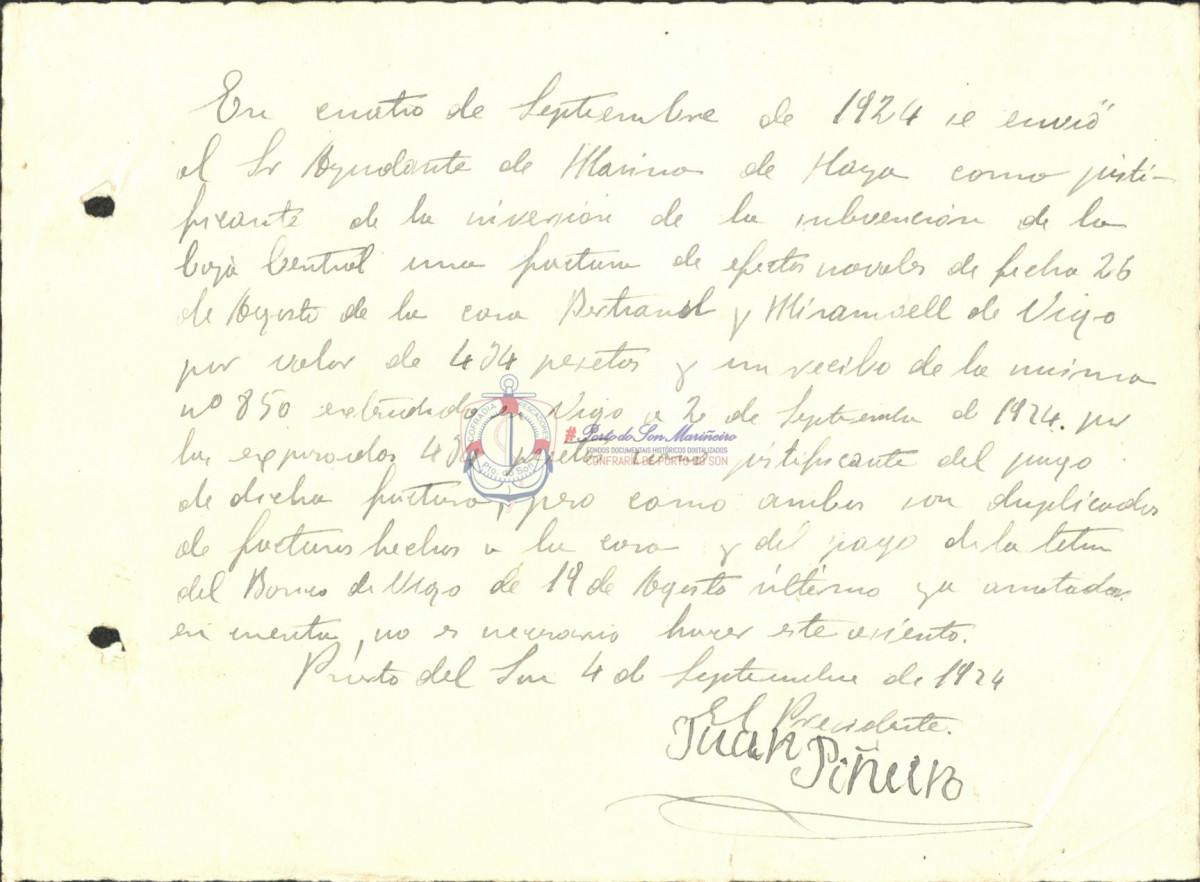 En cuatro de Septiembre de 1924 se envió
al Sr Ayudante de Marina de Noya como justi-
ficante de la inversión de la subvención de la
Caja Central una factura de efectos navales de fecha 26
de Agosto de la casa Bertrand y Miramsell de Vigo
por valor de 434 pesetas y un recibo de la misma
nº 850 extendido en Vigo a 2 de Septiembre de 1924. por
las expresadas 434 pesetas como justificante del pago
de dicha factura, pero como ambos son duplicados
de facturas hechas a la casa y del pago de la letra
del Banco de Vigo de 19 de Agosto último ya anotados
en cuenta, no es necesario hacer este asiento.
Puerto del Son 4 de Septiembre de 1924
El Presidente.
Juan Piñeiro
COFRADIA PESCADORES
Pto. do Son
#Porto do Son Mariñeiro
FONDOS DOCUMENTAIS HISTÓRICOS DIXITALIZADOS
CONFRARÍA DE PORTO DO SON